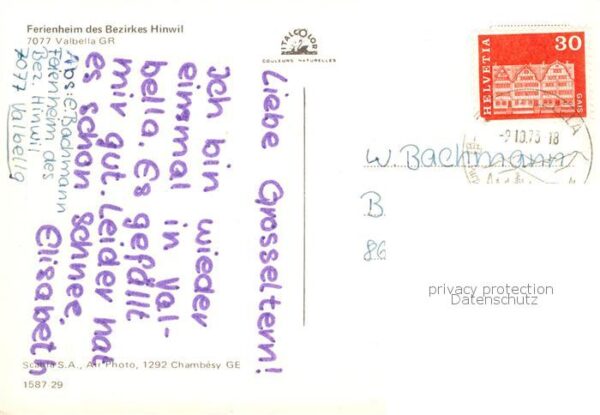 Ferienheim des Bezirkes Hinwil
7077 Valbella GR
ITALCOLOR
COULEURS NATURELLES
Abs: E. Bachmann
Ferienheim des
Bez. Hinwil
7077 Valbella
Liebe Grosseltern!
Ich bin wieder
einmal in Val-
bella. Es gefällt
mir gut. Leider hat
es schon schnee.
Elisabeth
HELVETIA
30
GAIS
-9.10.73.18
W. Bachmann
B
86
privacy protection
Datenschutz
S.A., Air Photo, 1292 Chambésy GE
1587 29